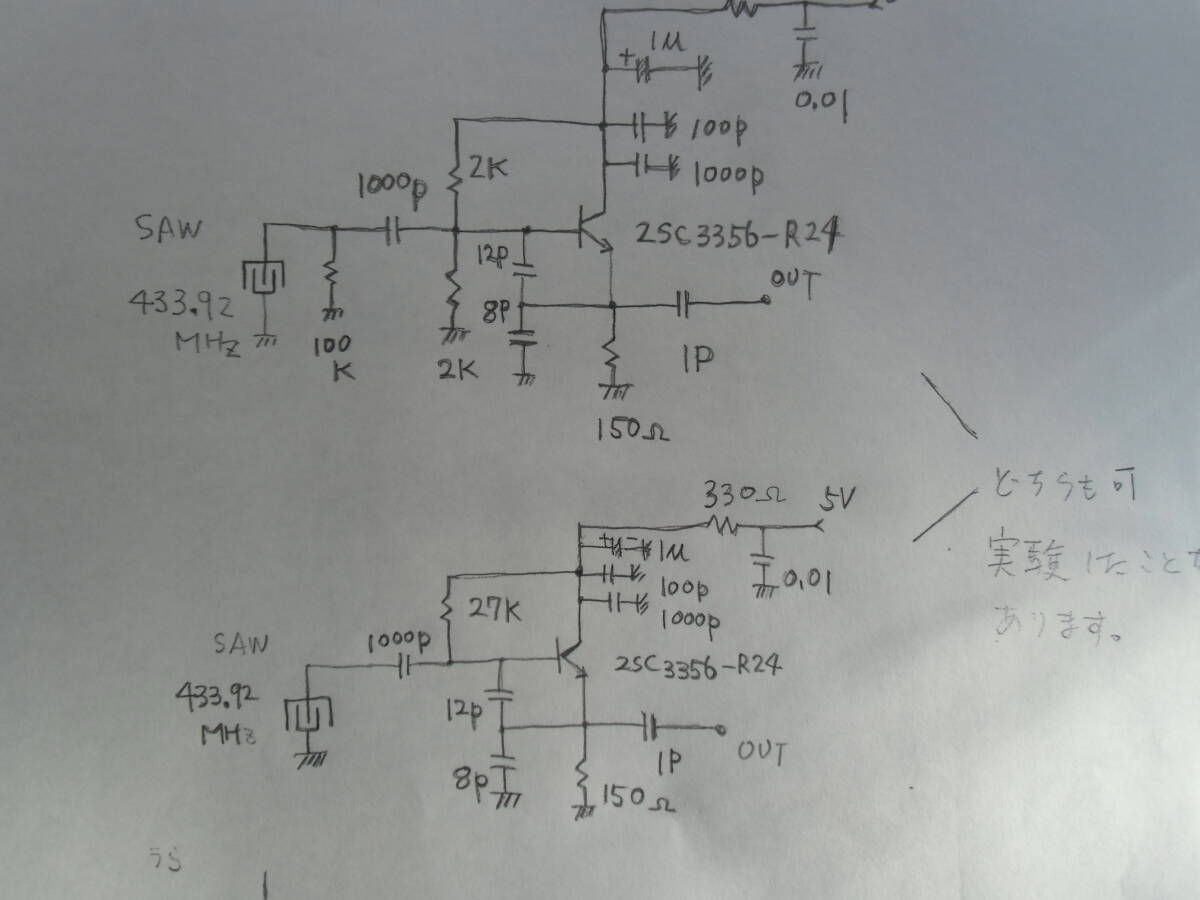 1μ
0.01
100p
1000p
2K
1000p
SAW
12p
2SC3356-R24
OUT
433.92
MHz
8p
100
K
2K
1P
150Ω
どちらも可
実験したことも
あります。
330Ω
5V
1μ
100p
0.01
1000p
27K
SAW
1000p
2SC3356-R24
433.92
MHz
12p
OUT
1P
8p
150Ω